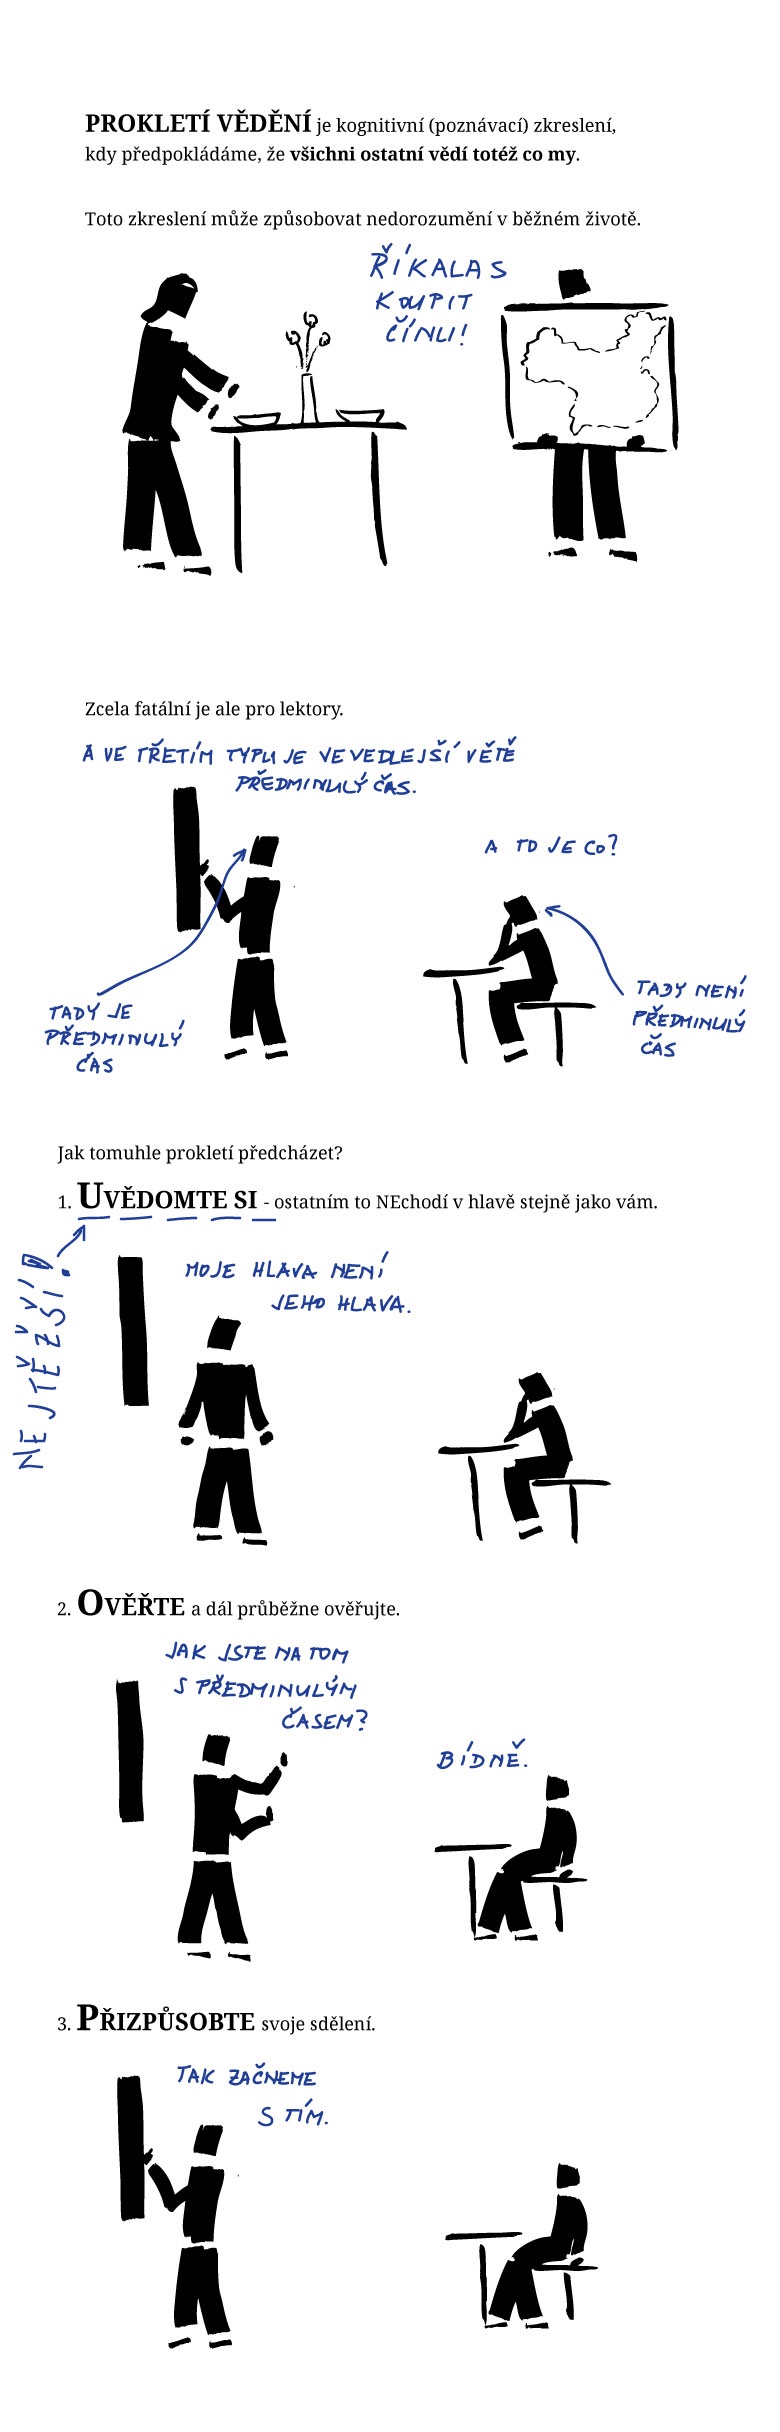 PROKLETÍ VĚDĚNÍ je kognitivní (poznávací) zkreslení,
kdy předpokládáme, že všichni ostatní vědí totéž co my.
Toto zkreslení může způsobovat nedorozumění v běžném životě.
ŘÍKALAS
KOUPIT
ČÍNU!
Zcela fatální je ale pro lektory.
A VE TŘETÍM TYPU JE VE VEDLEJŠÍ VĚTĚ
PŘEDMINULÝ ČAS.
A TO JE CO?
TADY JE
PŘEDMINULÝ
ČAS
TADY NENÍ
PŘEDMINULÝ
ČAS
Jak tomuhle prokletí předcházet?
1. UVĚDOMTE SI - ostatním to NEchodí v hlavě stejně jako vám.
NEJTĚŽŠÍ!
MOJE HLAVA NENÍ
JEHO HLAVA.
2. OVĚŘTE a dál průběžne ověřujte.
JAK JSTE NA TOM
S PŘEDMINULÝM
ČASEM?
BÍDNĚ.
3. PŘIZPŮSOBTE svoje sdělení.
TAK ZAČNEME
S TÍM.